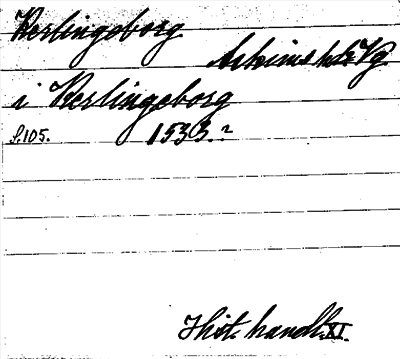 Kerlingeborg
Askims hd Vg
i Kerlingeborg
s. 105. 1533.?
Hist. handl. XI.